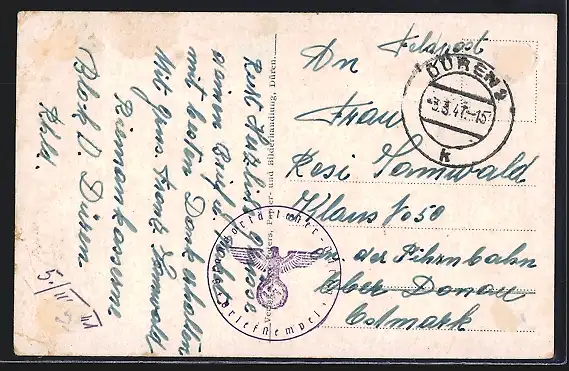 Feldpost
An
Frau
Resi Sannwald
Klaus No 50
an der Pihrnbahn
Ober Donau
Ostmark
DÜREN 2
3.3.41-15
k
Recht herzliche Grüsse
deinen Brief
mit besten Dank erhalten
Mit gruss Franz Sannwald
Riemannkaserne
Block V. Düren.
Rhld.
5./III 41
Papier- und Bilderhandlung, Düren.
Briefstempel